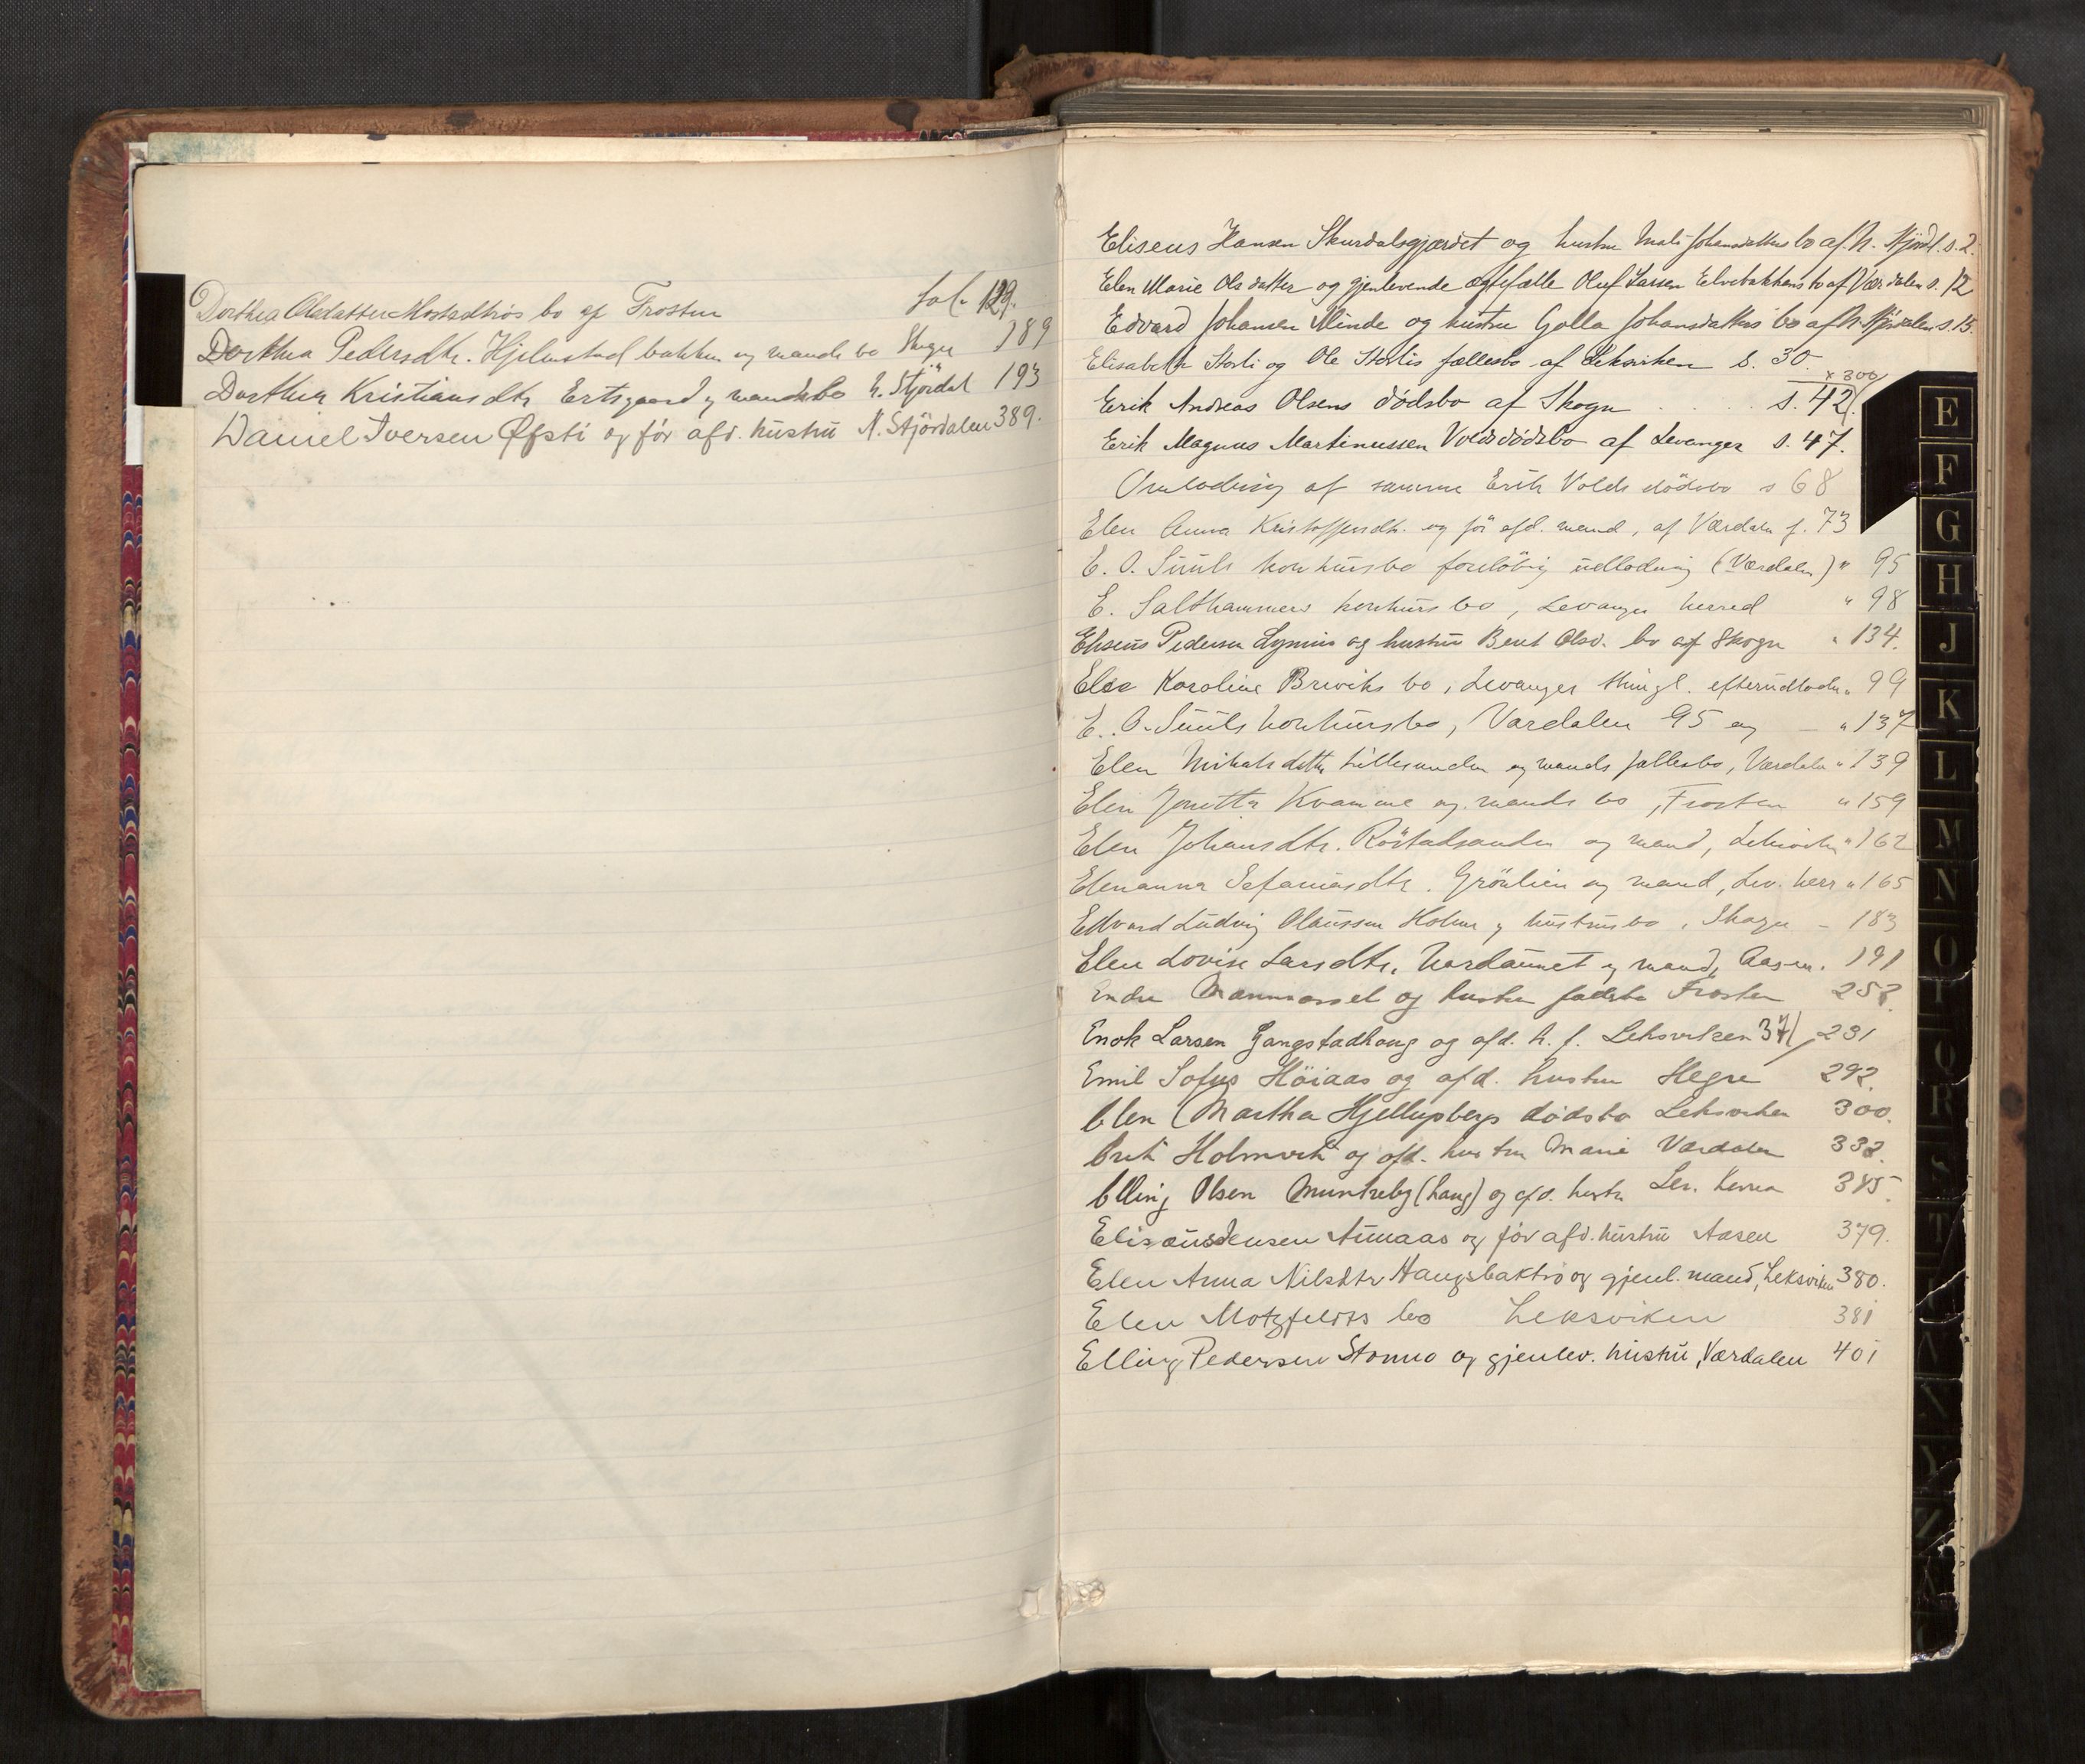 Dorthea Olsdatter Mostadtrøs bo af Frosten fol. 129.
Dorthea Pedersdtr. Hjelmstad bakken og mands bo Skogn 189
Dorthea Kristiansdtr Ertsgaard og mandsbo N. Stjördal 193
Daniel Iversen Øfsti og før afd. hustru N. Stjördalen 389.
Eliseus Hansen Skurdalsgjærdet og hustru Mali Johansdatters bo af N. Stjørd. s. 2.
Elen Marie Olsdatter og gjenlevende ægtefælle Oluf Larsen Elvebakkens bo af Værdalen s. 12
Edvard Johansen Minde og hustru Golla Johansdatters bo af N. Stjørdalen s. 15.
Elisabeth Storli og Ole Storlis fællesbo af Leksviken s. 30.
x 300
Erik Andreas Olsens dødsbo af Skogn s. 42.
Erik Magnus Martinussen Volds dødsbo af Levanger s. 47.
Omlodning af samme Erik Volds dödsbo s 68
Elen Anna Kristoffersdtr. og för afd. mand, af Værdalen f. 73
E. O. Suuls konkursbo foreløbig udlodning (Værdalen) " 95
E. Salthammers konkursbo, Levanger herred " 98
Eliseus Pedersen Lynnis og hustru Berit Olsd. bo af Skogn " 134.
Else Karoline Breviks bo, Levanger thingl. efterudlodn " 99
E. O. Suuls konkursbo, Værdalen 95 og — " 137
Elen Mikalsdatter Lillesunden og mands fællesbo, Værdalen " 139
Elen Jonetta Kvamme og mands bo, Frosten " 159
Elen Johansdtr. Röstadsanden og mand, Leksviken " 162
Elenanna Sefaniasdtr. Grönlien og mand, Lev. herr " 165
Edvard Ludvig Olaussen Holme og hustrus bo, Skogn - 183
Elen Lovise Larsdtr. Vordaunet og mand, Aasen. 191
Endre Mannæssel og hustru fællesbo Frosten 253.
Enok Larsen Gangstadhaug og afd. h. f. Leksviken 371/ 231
Emil Sofus Höiaas og afd. hustru Hegre 292.
Elen Martha Hjellupbergs dødsbo Leksviken 300.
Erik Holmvik og afd. hustru Marie Værdalen 332.
Elling Olsen Munkeby (haug) og afd. hustr Lev. herred 345.
Elisæus Jensen Aunaas og før afd. hustru Aasen 379.
Elen Anna Nilsdtr Haugsbaktrø og gjenl. mand, Leksviken 380.
Elen Motzfeldts bo Leksviken 381
Elling Pedersen Stamno og gjenlev. hustru, Værdalen 401
E
F
G
H
J
K
L
M
N
O
P
Q
R
S
T
U